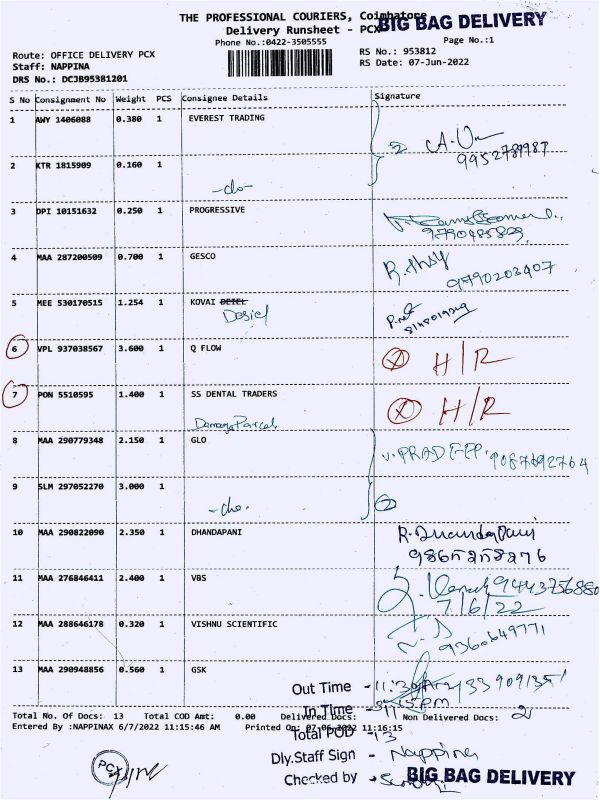 THE PROFESSIONAL COURIERS, Coimbatore
BIG BAG DELIVERY
Delivery Runsheet - PCX
Phone No.:0422-3505555
Page No.:1
Route: OFFICE DELIVERY PCX
RS No.: 953812
Staff: NAPPINA
RS Date: 07-Jun-2022
DRS No.: DCJB95381201
S No Consignment No Weight PCS Consignee Details Signature
1 AWY 1406088 0.380 1 EVEREST TRADING
9952789987
2 KTR 1815909 0.160 1
-do-
3 DPI 10151632 0.250 1 PROGRESSIVE
9790485829
4 MAA 287200509 0.700 1 GESCO
9790203407
5 MEE 530170515 1.254 1 KOVAI DEIEL
6 VPL 937038567 3.600 1 Q FLOW H/R
7 PON 5510595 1.400 1 SS DENTAL TRADERS H/R
Damage Parcel
8 MAA 290779348 2.150 1 GLO
V. PRADEEP 9087692764
9 SLM 297052270 3.000 1
-do-
10 MAA 290822090 2.350 1 DHANDAPANI
9865258276
11 MAA 276846411 2.400 1 VBS
9443756880
7/6/22
12 MAA 288646178 0.320 1 VISHNU SCIENTIFIC
9360649771
13 MAA 290948856 0.560 1 GSK
Out Time - 11:30
In Time
Total No. Of Docs: 13 Total COD Amt: 0.00 Delivered Docs: 11 Non Delivered Docs: 2
Entered By :NAPPINAX 6/7/2022 11:15:46 AM Printed On: 07-06-2022 11:16:15
Total POD - 13
Dly.Staff Sign - Nappina
Checked by
BIG BAG DELIVERY
PCX